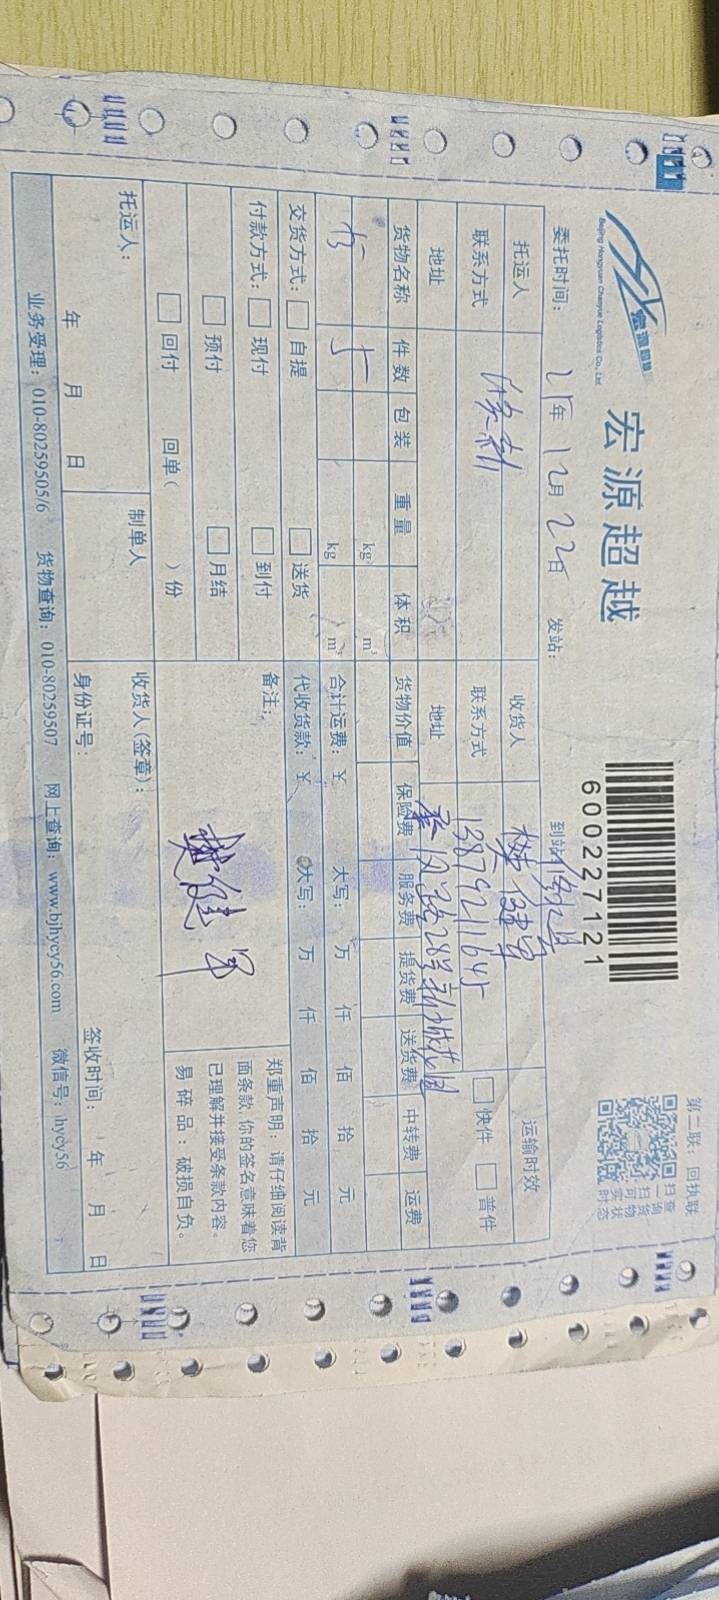 宏源超越
Beijing Hongyuan Chaoyue Logistics Co., Ltd.
600227121
第二联：回执联
扫一扫可实时
查询货物状态
委托时间：21年12月22日 发站： 到站
托运人 收货人 樊健军 运输时效
联系方式 联系方式 13879211645 快件 普件
地址 地址 28号新城花园
货物名称 件数 包装 重量 体积 货物价值 保险费 服务费 提货费 送货费 中转费 运费
书 5 kg m³
kg m³ 合计运费：￥ 大写： 万 仟 佰 拾 元
交货方式： 自提 送货 代收货款：￥ 大写： 万 仟 佰 拾 元
付款方式： 现付 到付 备注：
预付 月结
回付 回单（ ）份
樊健军
郑重声明：请仔细阅读背
面条款 你的签名意味着您
已理解并接受条款内容。
易碎品：破损自负。
托运人： 制单人 收货人(签章)：
年 月 日 身份证号： 签收时间： 年 月 日
业务受理：010-80259505/6 货物查询：010-80259507 网上查询：www.bjhycy56.com 微信号：hycy56